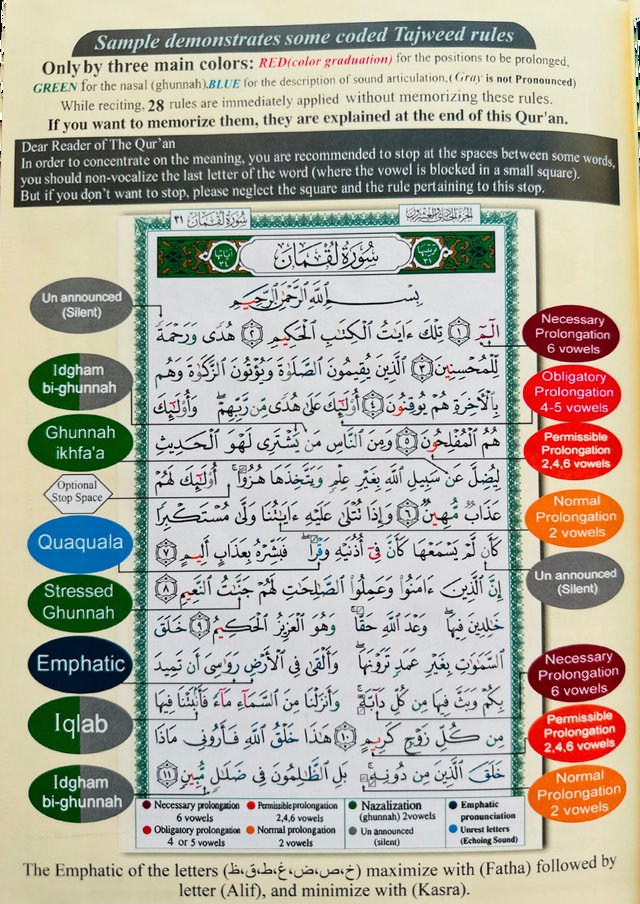 Sample demonstrates some coded Tajweed rules
Only by three main colors: RED(color graduation) for the positions to be prolonged,
GREEN for the nasal (ghunnah),BLUE for the description of sound articulation,(Gray is not Pronounced)
While reciting, 28 rules are immediately applied without memorizing these rules.
If you want to memorize them, they are explained at the end of this Qur'an.
Dear Reader of The Qur'an
In order to concentrate on the meaning, you are recommended to stop at the spaces between some words,
you should non-vocalize the last letter of the word (where the vowel is blocked in a small square).
But if you don't want to stop, please neglect the square and the rule pertaining to this stop.
سُورَةُ لُقْمَان ٣١
الجزء الحادي والعشرون
ترتيبها ٣١
سُورَةُ لُقْمَان
آياتها ٣٤
بِسْمِ اللَّهِ الرَّحْمَنِ الرَّحِيمِ
الٓمٓ ١ تِلْكَ ءَايَٰتُ الْكِتَٰبِ الْحَكِيمِ ٢ هُدًى وَرَحْمَةً
لِّلْمُحْسِنِينَ ٣ الَّذِينَ يُقِيمُونَ الصَّلَوٰةَ وَيُؤْتُونَ الزَّكَوٰةَ وَهُم
بِالْآخِرَةِ هُمْ يُوقِنُونَ ٤ أُوْلَٰٓئِكَ عَلَىٰ هُدًى مِّن رَّبِّهِمْ ۖ وَأُوْلَٰٓئِكَ
هُمُ الْمُفْلِحُونَ ٥ وَمِنَ النَّاسِ مَن يَشْتَرِى لَهْوَ الْحَدِيثِ
لِيُضِلَّ عَن سَبِيلِ اللَّهِ بِغَيْرِ عِلْمٍ وَيَتَّخِذَهَا هُزُوًا ۚ أُوْلَٰٓئِكَ لَهُمْ
عَذَابٌ مُّهِينٌ ٦ وَإِذَا تُتْلَىٰ عَلَيْهِ ءَايَٰتُنَا وَلَّىٰ مُسْتَكْبِرًا
كَأَن لَّمْ يَسْمَعْهَا كَأَنَّ فِىٓ أُذُنَيْهِ وَقْرًا ۖ فَبَشِّرْهُ بِعَذَابٍ أَلِيمٍ ٧
إِنَّ الَّذِينَ ءَامَنُوا۟ وَعَمِلُوا۟ الصَّٰلِحَٰتِ لَهُمْ جَنَّٰتُ النَّعِيمِ ٨
خَٰلِدِينَ فِيهَا ۖ وَعْدَ اللَّهِ حَقًّا ۚ وَهُوَ الْعَزِيزُ الْحَكِيمُ ٩ خَلَقَ
السَّمَٰوَٰتِ بِغَيْرِ عَمَدٍ تَرَوْنَهَا ۖ وَأَلْقَىٰ فِى الْأَرْضِ رَوَٰسِىَ أَن تَمِيدَ
بِكُمْ وَبَثَّ فِيهَا مِن كُلِّ دَآبَّةٍ ۚ وَأَنزَلْنَا مِنَ السَّمَآءِ مَآءً فَأَنۢبَتْنَا فِيهَا
مِن كُلِّ زَوْجٍ كَرِيمٍ ١٠ هَٰذَا خَلْقُ اللَّهِ فَأَرُونِى مَاذَا
خَلَقَ الَّذِينَ مِن دُونِهِۦ ۚ بَلِ الظَّٰلِمُونَ فِى ضَلَٰلٍ مُّبِينٍ ١١
Un announced
(Silent)
Idgham
bi-ghunnah
Ghunnah
ikhfa'a
Optional
Stop Space
Quaquala
Stressed
Ghunnah
Emphatic
Iqlab
Idgham
bi-ghunnah
Necessary
Prolongation
6 vowels
Obligatory
Prolongation
4-5 vowels
Permissible
Prolongation
2,4,6 vowels
Normal
Prolongation
2 vowels
Un announced
(Silent)
Necessary
Prolongation
6 vowels
Permissible
Prolongation
2,4,6 vowels
Normal
Prolongation
2 vowels
Necessary prolongation
6 vowels
Permissible prolongation
2,4,6 vowels
Nazalization
(ghunnah) 2vowels
Emphatic
pronunciation
Obligatory prolongation
4 or 5 vowels
Normal prolongation
2 vowels
Un announced
(silent)
Unrest letters
(Echoing Sound)
The Emphatic of the letters (خ،ص،ض،غ،ط،ق،ظ) maximize with (Fatha) followed by
letter (Alif), and minimize with (Kasra).